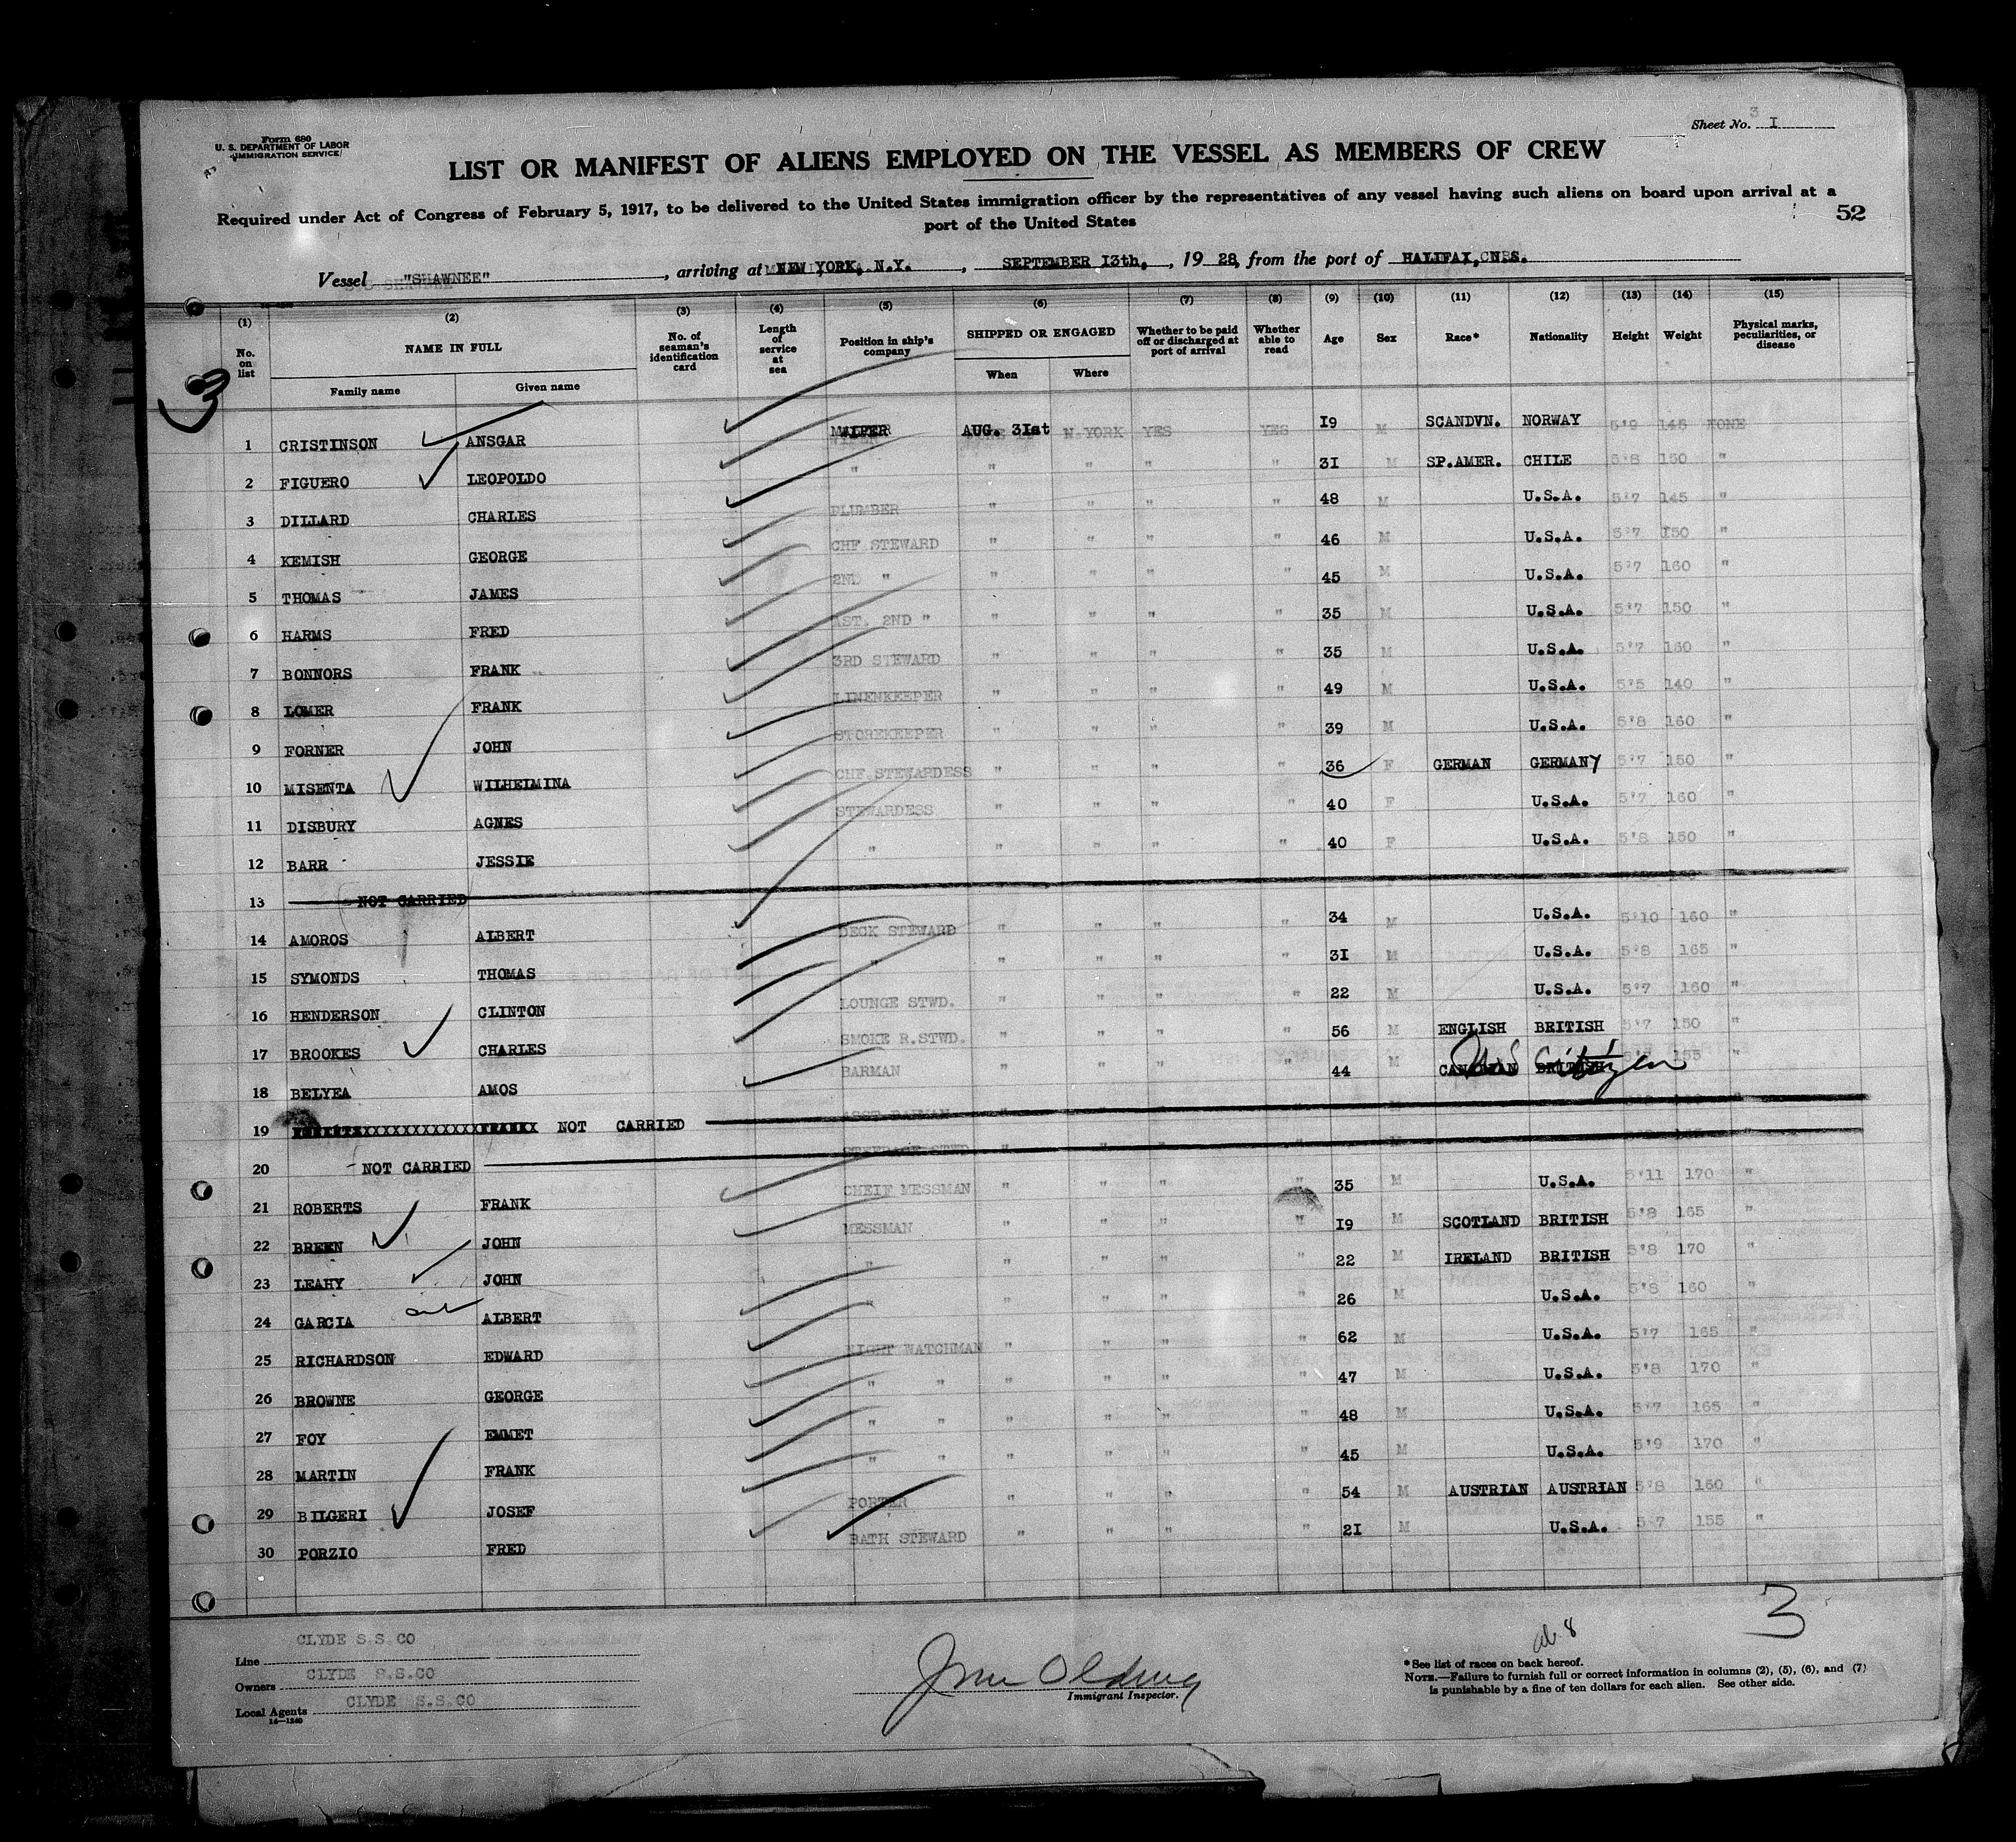 Form 680
U. S. DEPARTMENT OF LABOR
IMMIGRATION SERVICE
Sheet No. 3 I
LIST OR MANIFEST OF ALIENS EMPLOYED ON THE VESSEL AS MEMBERS OF CREW
Required under Act of Congress of February 5, 1917, to be delivered to the United States immigration officer by the representatives of any vessel having such aliens on board upon arrival at a
port of the United States
52
Vessel "SHAWNEE", arriving at NEW YORK, N.Y., SEPTEMBER 13th, 1928, from the port of HALIFAX, N.S.
(1) (2) (3) (4) (5) (6) (7) (8) (9) (10) (11) (12) (13) (14) (15)
No. on list NAME IN FULL Family name Given name No. of seaman's identification card Length of service at sea Position in ship's company SHIPPED OR ENGAGED When Where Whether to be paid off or discharged at port of arrival Whether able to read Age Sex Race* Nationality Height Weight Physical marks, peculiarities, or disease
1 CRISTINSON ANSGAR WIPER AUG. 31st N.YORK YES YES 19 M SCANDVN. NORWAY 5'9 145 NONE
2 FIGUERO LEOPOLDO " " " " " 31 M SP.AMER. CHILE 5'8 150 "
3 DILLARD CHARLES PLUMBER " " " " 48 M U.S.A. 5'7 145 "
4 KEMISH GEORGE CHF STEWARD " " " " 46 M U.S.A. 5'7 150 "
5 THOMAS JAMES 2ND " " " " " 45 M U.S.A. 5'7 160 "
6 HARMS FRED AST. 2ND " " " " " 35 M U.S.A. 5'7 150 "
7 BONNORS FRANK 3RD STEWARD " " " " 35 M U.S.A. 5'7 160 "
8 LOMER FRANK LINENKEEPER " " " " 49 M U.S.A. 5'5 140 "
9 FORNER JOHN STOREKEEPER " " " " 39 M U.S.A. 5'8 160 "
10 MISENTA WILHELMINA CHF.STEWARDESS " " " " 36 F GERMAN GERMANY 5'7 150 "
11 DISBURY AGNES STEWARDESS " " " " 40 F U.S.A. 5'7 160 "
12 BARR JESSIE " " " " " 40 F U.S.A. 5'8 150 "
13 NOT CARRIED
14 AMOROS ALBERT DECK STEWARD " " " " 34 M U.S.A. 5'10 160 "
15 SYMONDS THOMAS " " " " " 31 M U.S.A. 5'8 165 "
16 HENDERSON CLINTON LOUNGE STWD. " " " " 22 M U.S.A. 5'7 160 "
17 BROOKES CHARLES SMOKE R.STWD. " " " " 56 M ENGLISH BRITISH 5'7 150 "
18 BELYEA AMOS BARMAN " " " " 44 M CANADIAN BRITISH U.S Citizen 155 "
19 NOT CARRIED ASST BARMAN
20 NOT CARRIED STEERAGE STWD
21 ROBERTS FRANK CHEIF MESSMAN " " " " 35 M U.S.A. 5'11 170 "
22 BREEN JOHN MESSMAN " " " " 19 M SCOTLAND BRITISH 5'8 165 "
23 LEAHY JOHN " " " " " 22 M IRELAND BRITISH 5'8 170 "
24 GARCIA ALBERT " " " " " 26 M U.S.A. 5'8 160 "
25 RICHARDSON EDWARD NIGHT WATCHMAN " " " " 62 M U.S.A. 5'7 165 "
26 BROWNE GEORGE " " " " " " 47 M U.S.A. 5'8 170 "
27 FOY EMMET " " " " " " 48 M U.S.A. 5'7 165 "
28 MARTIN FRANK " " " " " " 45 M U.S.A. 5'9 170 "
29 BILGERI JOSEF PORTER " " " " 54 M AUSTRIAN AUSTRIAN 5'8 160 "
30 PORZIO FRED BATH STEWARD " " " " 21 M U.S.A. 5'7 155 "
3
Line CLYDE S.S.CO
Owners CLYDE S.S.CO
Local Agents CLYDE S.S.CO
14—1240
Immigrant Inspector.
*See list of races on back hereof.
NOTE.—Failure to furnish full or correct information in columns (2), (5), (6), and (7)
is punishable by a fine of ten dollars for each alien. See other side.